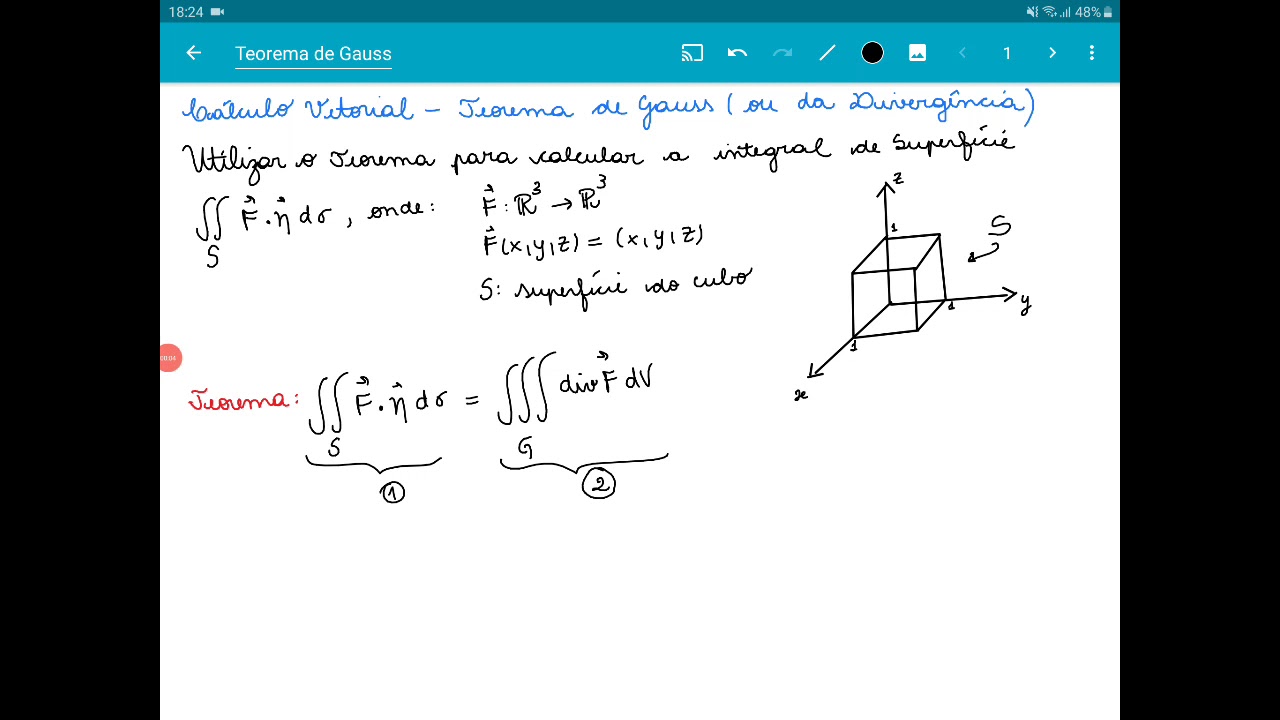 18:24 48%
Teorema de Gauss 1
Cálculo Vetorial - Teorema de Gauss (ou da Divergência)
Utilizar o Teorema para calcular a integral de superfície
∬ F⃗ . η⃗ dσ , onde: F⃗ : ℝ³ → ℝ³
S
F⃗(x,y,z) = (x,y,z)
S: superfície do cubo
z
1
S
1
y
1
x
00:04
Teorema: ∬ F⃗ . η⃗ dσ = ∭ div F⃗ dV
S G
① ②